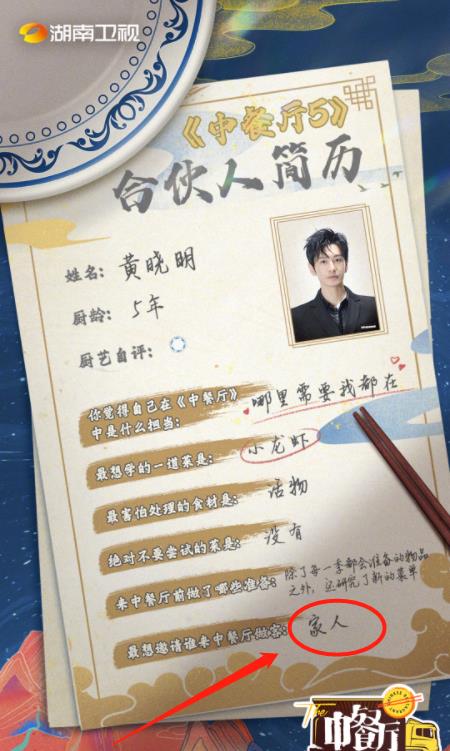 湖南卫视
《中餐厅5》
合伙人简历
姓名: 黄晓明
厨龄: 5年
厨艺自评:
你觉得自己在《中餐厅》
中是什么担当:
哪里需要我都在
最想学的一道菜是: 小龙虾
最害怕处理的食材是: 活物
绝对不要尝试的菜是: 没有
来中餐厅前做了哪些准备: 除了每一季都会准备的物品
之外, 还研究了新的菜单
最想邀请谁来中餐厅做客: 家人
The
中餐厅